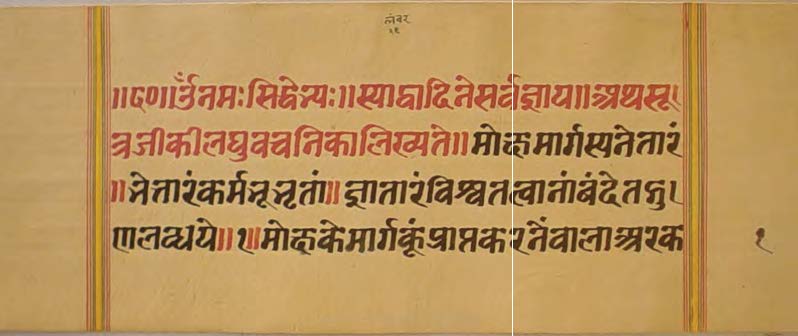 लंबर
२६
॥८०॥ॐनमःसिद्धेभ्यः॥स्याद्वादिनेसर्वज्ञाय॥अथसू।
त्रजीकीलघुवचनिकालिख्यते॥मोक्षमार्गस्यनेतारं
॥भेत्तारंकर्मभूभृतां॥ज्ञातारंविश्वतत्वानांबंदेतद्गु।
णलब्धये॥१॥मोक्षकेमार्गकूंप्राप्तकरनेंवालाअरक
१